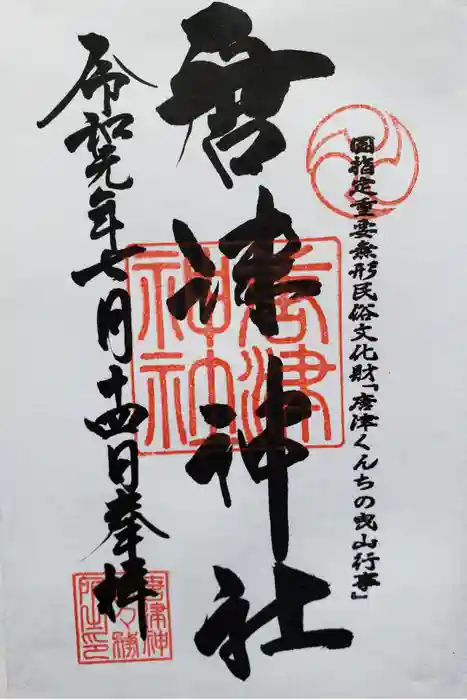 国指定重要無形民俗文化財「唐津くんちの曳山行事」
唐津神社
唐津
神社
令和元年七月十四日奉拝